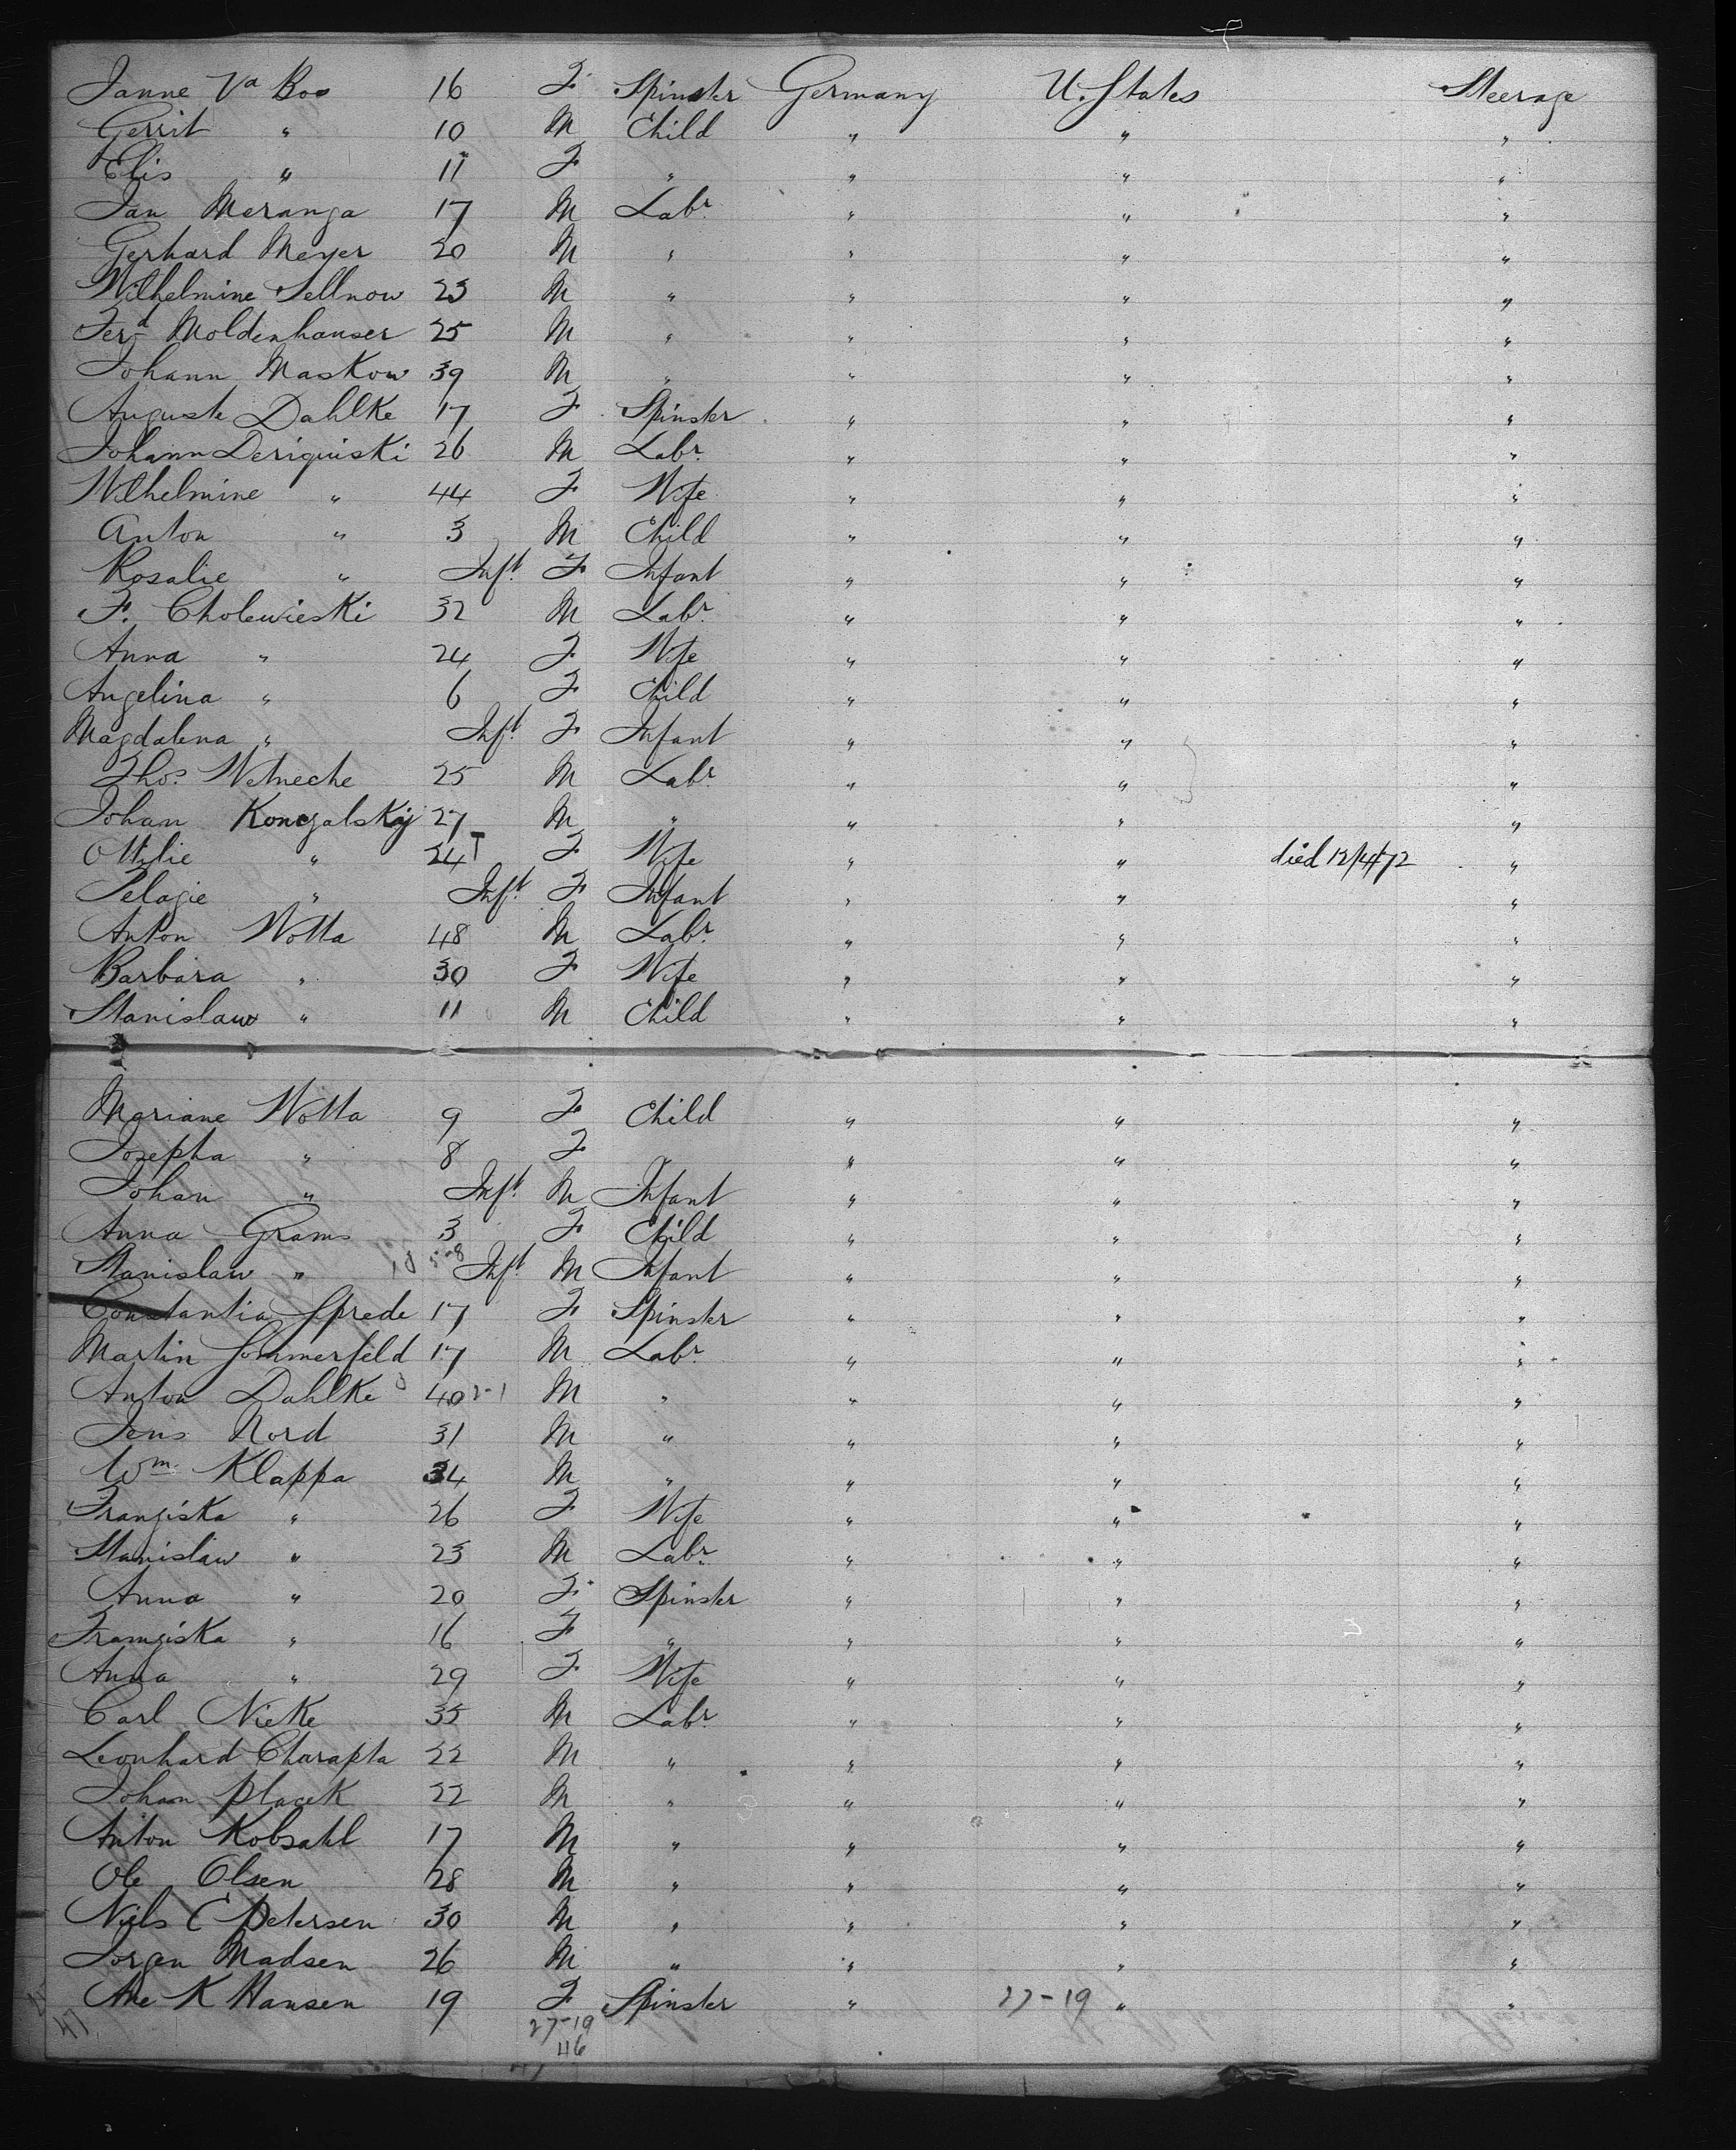 Janne Va Bos 16 F Spinster Germany U. States Steerage
Gerrit " 10 M Child " " "
Elis " 11 F " " " "
Jan Meranga 17 M Labr. " " "
Gerhard Meyer 20 M " " " "
Wilhelmine Sellnow 23 M " " " "
Ferd Moldenhauser 25 M " " " "
Johann Maskow 39 M " " " "
Auguste Dahlke 17 F Spinster " " "
Johann Deriquiski 26 M Labr. " " "
Wilhelmine " 44 F Wife " " "
Anton " 3 M Child " " "
Rosalie " Inft. F Infant " " "
F. Cholewieski 32 M Labr. " " "
Anna " 24 F Wife " " "
Angelina " 6 F Child " " "
Magdalena " Inft. F Infant " " "
Thos. Wetneche 25 M Labr. " " "
Johan Konczalsky 27 M " " " "
Ottilie " 24 T F Wife " " died 12/4/72 "
Pelagie " Inft. F Infant " " "
Anton Wotta 48 M Labr. " " "
Barbara " 30 F Wife " " "
Stanislaw " 11 M Child " " "
Mariane Wotta 9 F Child " " "
Josepha " 8 F " " "
Johan " Inft. M Infant " " "
Anna Grams 3 F Child " " "
Stanislaw " Inft. M Infant " " "
Constantia Sprede 17 F Spinster " " "
Martin Sommerfeld 17 M Labr. " " "
Anton Dahlke 40 2-1 M " " " "
Jens Nord 31 M " " " "
Wm. Klappa 34 M " " " "
Franziska " 26 F Wife " " "
Stanislaw " 23 M Labr. " " "
Anna " 20 F Spinster " " "
Franziska " 16 F " " " "
Anna " 29 F Wife " " "
Carl Nieke 35 M Labr. " " "
Leonhard Charapta 22 M " " " "
Johan Placek 22 M " " " "
Anton Kobsahl 17 M " " " "
Ole Olsen 28 M " " " "
Niels C Petersen 30 M " " " "
Jorgen Madsen 26 M " " " "
Ane K Hansen 19 F Spinster " 27-19 " "
27-19
46
47